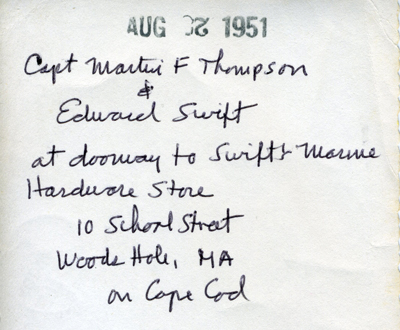 AUG 1951
Capt Martin F Thompson
&
Edward Swift
at doorway to Swift's Marine
Hardware Store
10 School Street
Woods Hole, MA
on Cape Cod